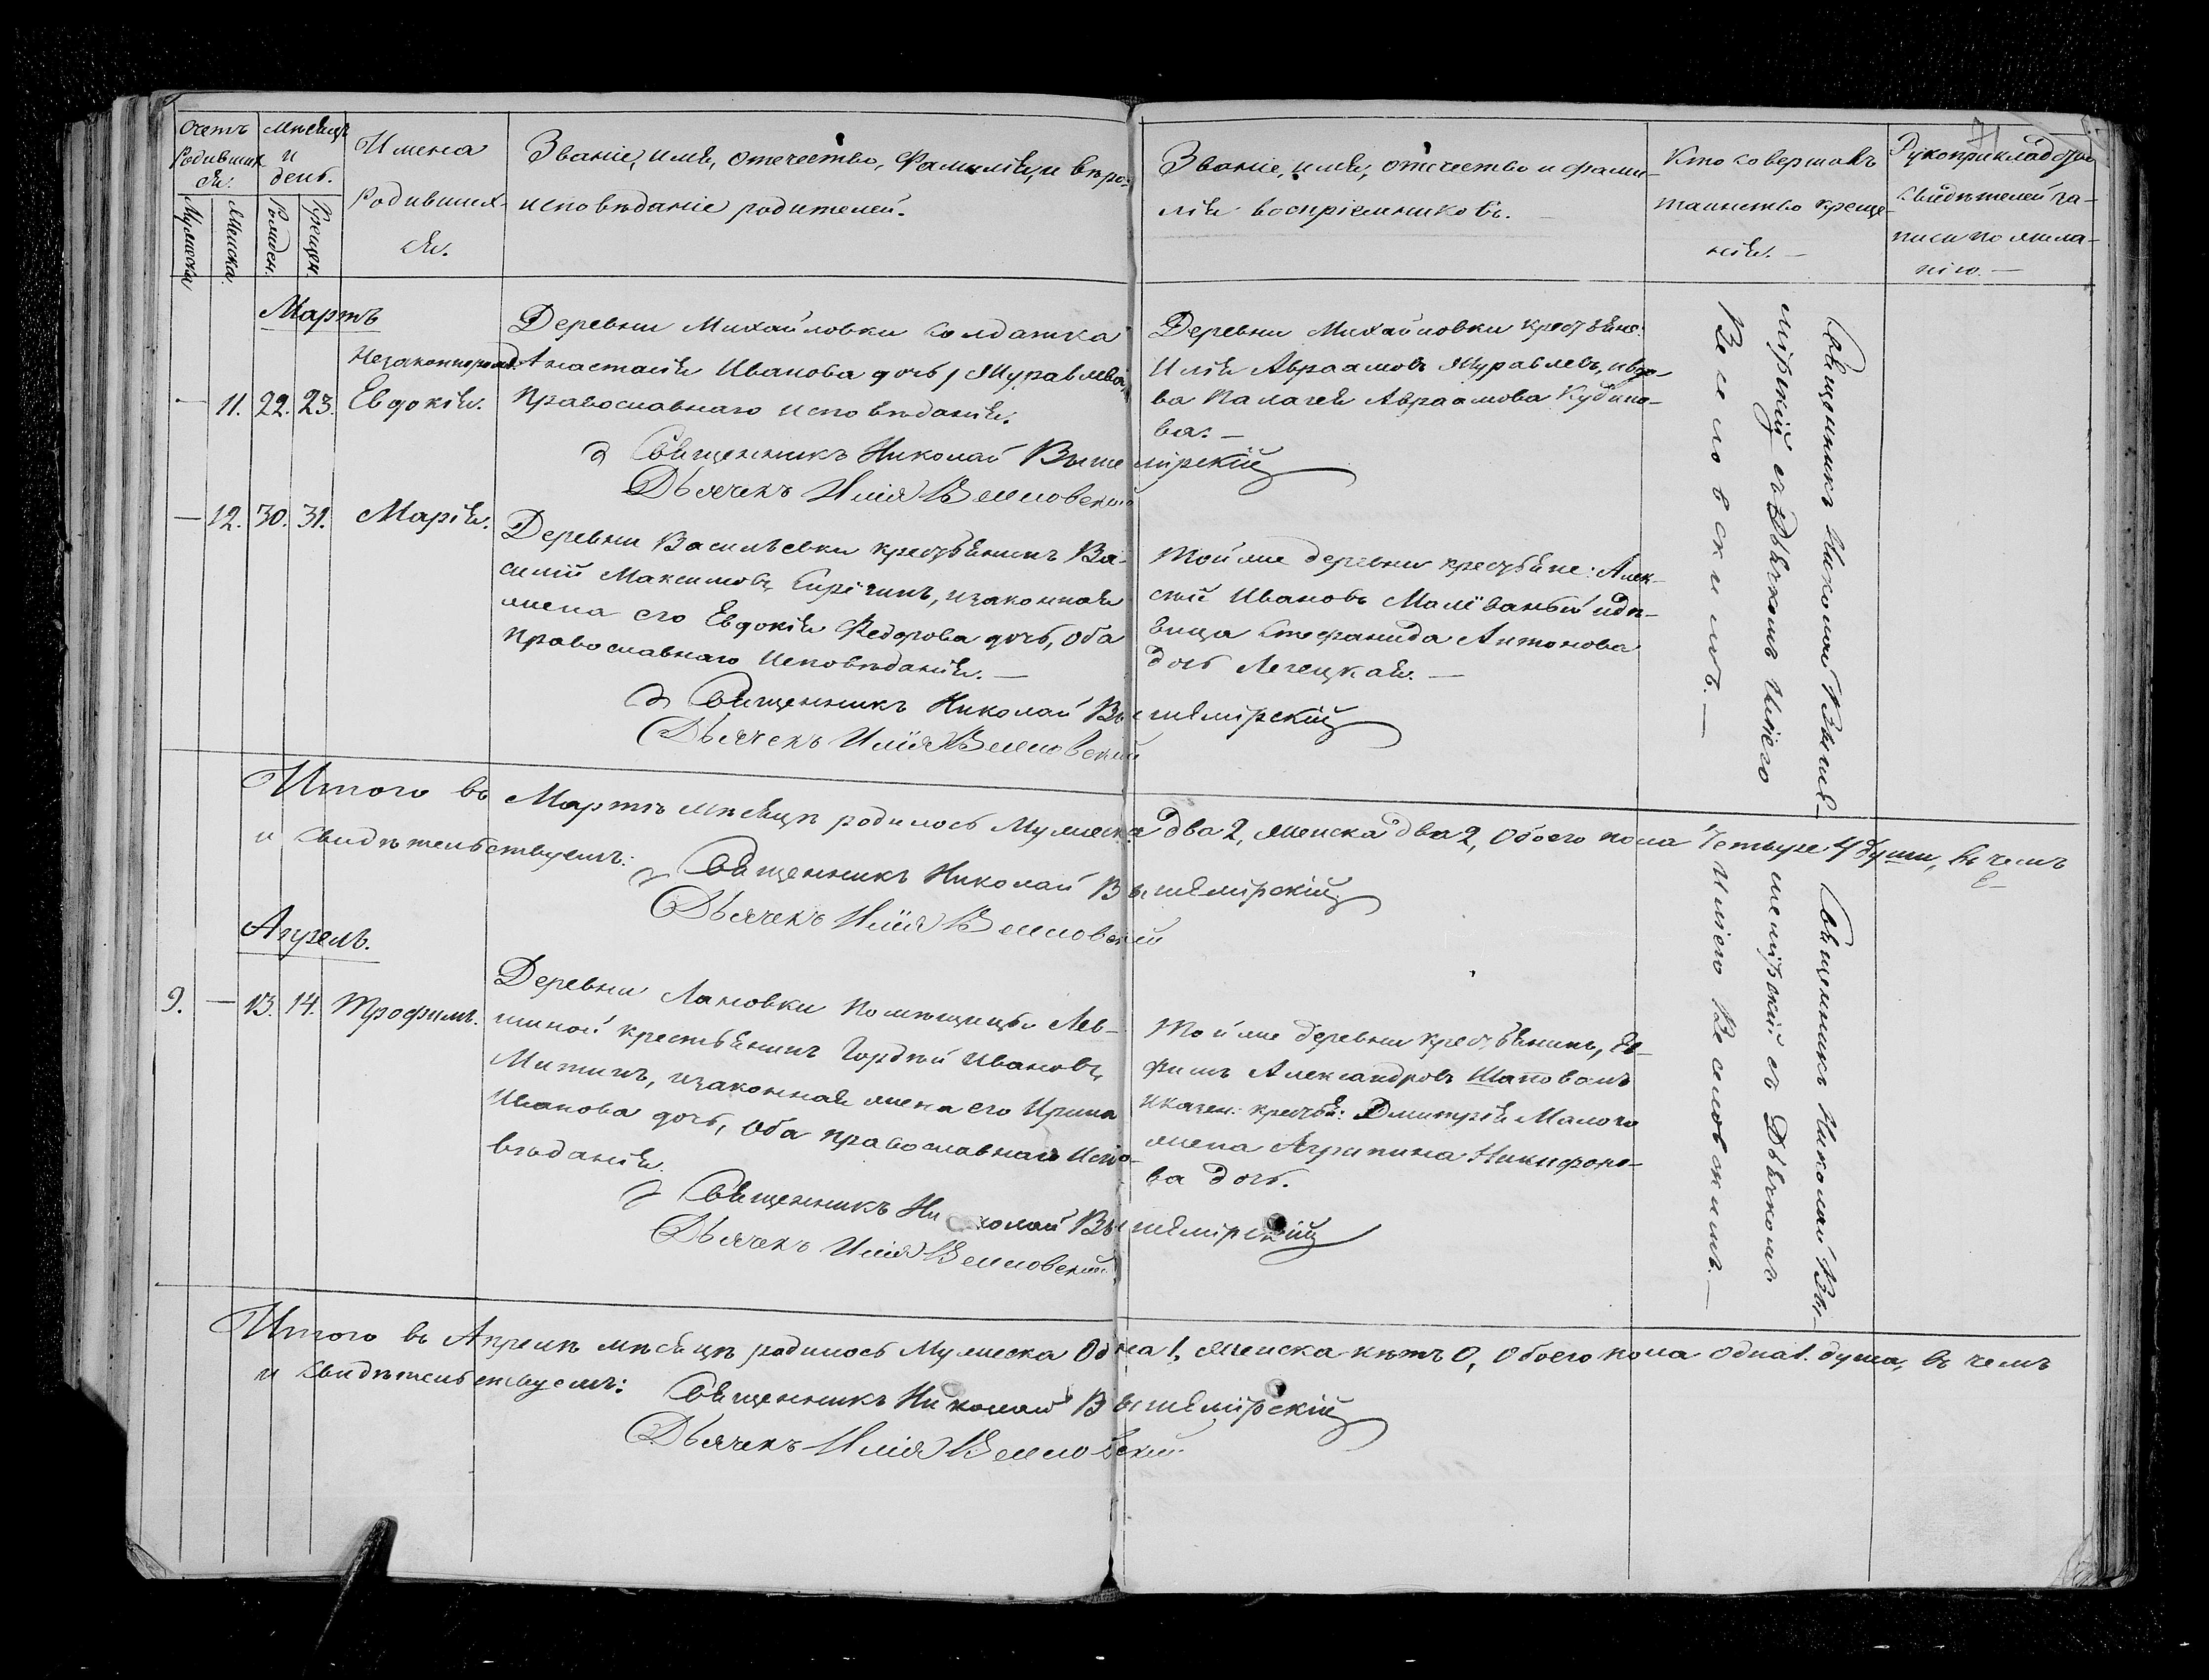 71
Счетъ
Родивших
ся.
Мужеска
Женска.
Мѣсяцъ
и
день.
Рожден.
Крещен.
Имена
Родивших-
ся.
Званіе, имя, отечество, Фамилія, и вѣро-
исповѣданіе родителей.
Званіе, имя, отечество и фами-
лія воспріемниковъ.
Кто совершалъ
таинство креще-
нія. —
Рукоприкладство
свидѣтелей за-
писи по жела-
нію. —
Мартъ
Незаконнорожд.
— 11. 22. 23. Евдокія.
Деревни Михайловки солдатка
Анастасія Иванова дочь Журавлева,
Православнаго исповѣданія.
Священникъ Николай Вышемірскій
Дьячекъ Илія Веселовскій
Деревни Михайловки крестьяне:
Илія Авраамовъ Журавлевъ, и вдо-
ва Палагея Авраамова Кудино-
ва. —
— 12. 30. 31. Марія.
Деревни Васильевки крестьянинъ Ва-
силій Максимовъ, и законная
жена его Евдокія Федорова дочь, оба
православнаго Исповѣданія. —
Священникъ Николай Вышемірскій
Дьячекъ Илія Веселовскій
Той же деревни крестьяне: Алек-
сѣй Ивановъ Малёваный и дѣ-
вица Стефанида Антонова
дочь Легецкая. —
Священникъ Николай Выше-
мірскій съ Дьячкомъ Иліею
Веселовскимъ. —
Итого въ Мартѣ мѣсяцѣ родилось Мужеска два 2, Женска два 2, Обоего пола Четыре 4 души, въ чемъ
и свидѣтельствуемъ:
Священникъ Николай Вышемірскій
Дьячекъ Илія Веселовскій
Апрель.
9. — 13. 14. Трофимъ.
Деревни Лановки Помѣщицы Лев-
шиной крестьянинъ Гордѣй Ивановъ
Митинъ, и законная жена его Ирина
Иванова дочь, Оба православнаго Испо-
вѣданія.
Священникъ Николай Вышемірскій
Дьячекъ Илія Веселовскій
Той же деревни крестьянинъ, Ев-
фимъ Александровъ Шаповалъ
и казен: крестья: Дмитрія Малого
жена Агрипина Никифоро-
ва дочь.
Священникъ Николай Вы-
шемірскій съ Дьячкомъ
Иліею Веселовскимъ. —
Итого въ Апрелѣ мѣсяцѣ родилось Мужеска Одна 1, Женска нѣтъ 0, Обоего пола одна 1. душа, въ чемъ
и свидѣтельствуемъ:
Священникъ Николай Вышемірскій
Дьячекъ Илія Веселовскій